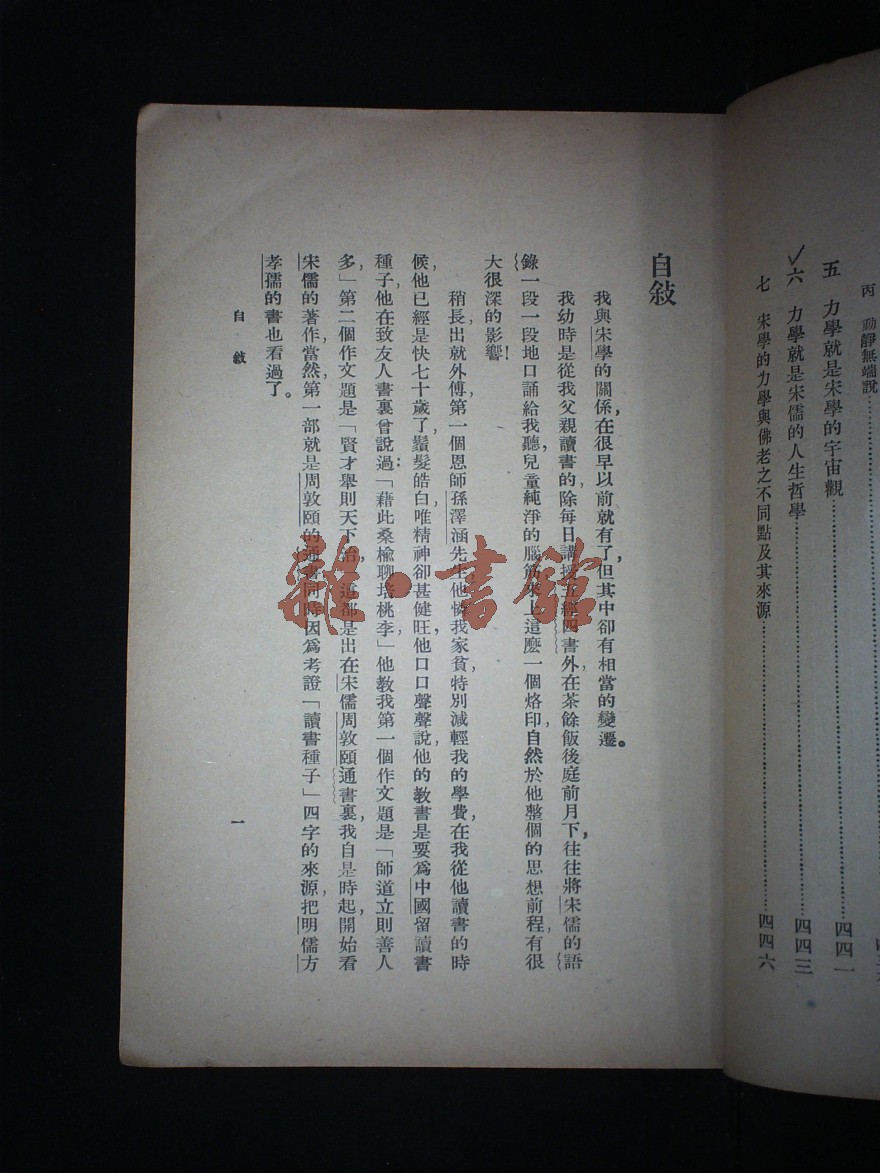 丙　動靜無端說
五　力學就是宋學的宇宙觀……四四一
六　力學就是宋儒的人生哲學……四四三
七　宋學的力學與佛老之不同點及其來源……四四六
自敍
我與宋學的關係，在很早以前就有了，但其中卻有相當的變遷。
我幼時是從我父親讀書的，除每日講授五經四書外，在茶餘飯後，庭前月下，往往將宋儒的語
錄一段一段地口誦給我聽，兒童純淨的腦筋染上這麼一個烙印，自然於他整個的思想前程，有很
大很深的影響！
稍長出就外傅，第一個恩師孫澤涵先生，他憐我家貧，特別減輕我的學費，在我從他讀書的時
候，他已經是快七十歲了，鬚髮皓白，唯精神卻甚健旺，他口口聲聲說他的教書是要爲中國留讀書
種子，他在致友人書裏曾說過：「藉此桑榆，聊培桃李，」他教我第一個作文題是「師道立則善人
多」第二個作文題是「賢才舉則天下治」，這都是出在宋儒周敦頤通書裏，我自是時起，開始看
宋儒的著作，當然，第一部就是周敦頤的通書，同時因爲考證「讀書種子」四字的來源，把明儒方
孝孺的書也看過了。
自　敍
一
雜·書館